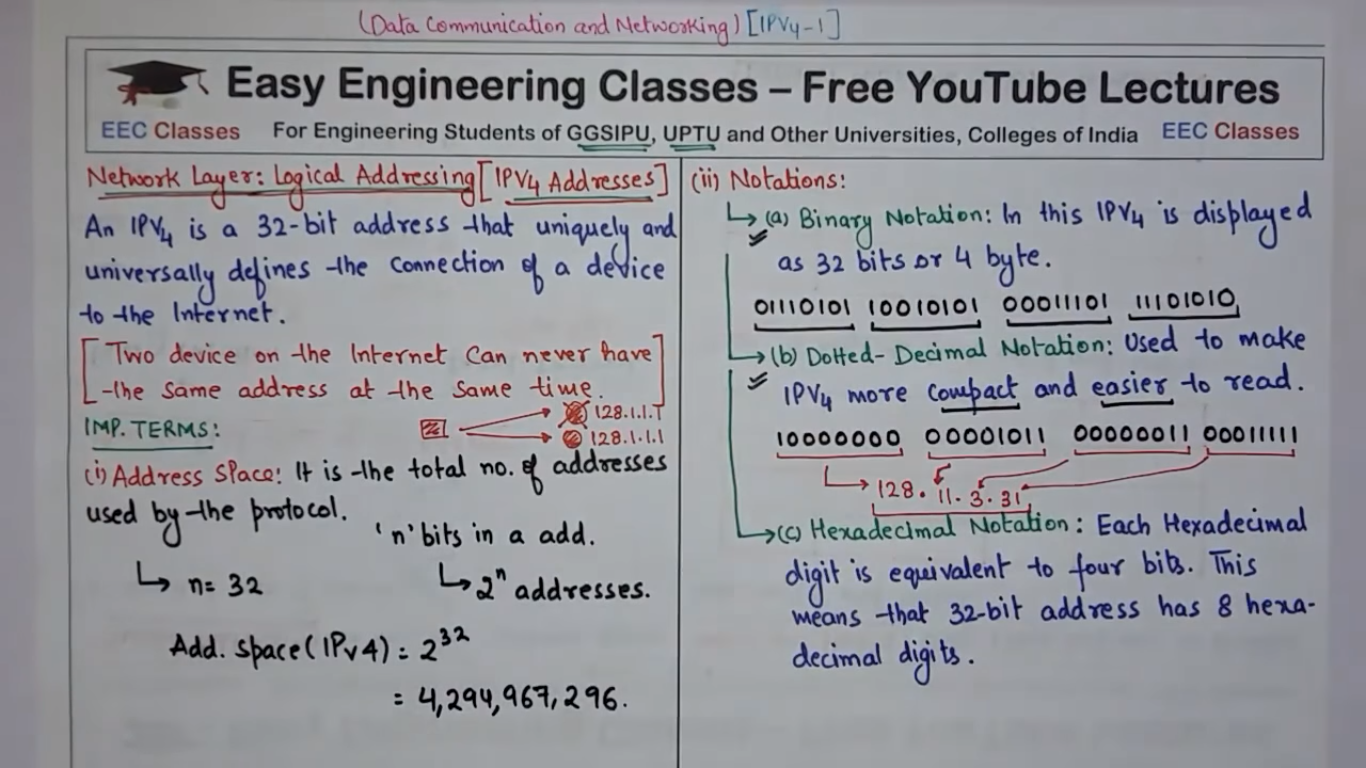 (Data Communication and Networking) [IPV4-1]
Easy Engineering Classes – Free YouTube Lectures
EEC Classes For Engineering Students of GGSIPU, UPTU and Other Universities, Colleges of India EEC Classes
Network Layer: Logical Addressing [IPV4 Addresses]
An IPV4 is a 32-bit address that uniquely and
universally defines the connection of a device
to the Internet.
[Two device on the Internet can never have
the same address at the same time.]
IMP. TERMS:
128.1.1.1
128.1.1.1
(i) Address Space: It is the total no. of addresses
used by the protocol.
'n' bits in a add.
↳ n= 32
↳ 2ⁿ addresses.
Add. Space (IPv4) = 2³²
= 4,294,967,296.
(ii) Notations:
↳ (a) Binary Notation: In this IPV4 is displayed
as 32 bits or 4 byte.
01110101 10010101 00011101 11101010
↳ (b) Dotted-Decimal Notation: Used to make
IPV4 more compact and easier to read.
10000000 00001011 00000011 00011111
↳ 128. 11. 3. 31
↳ (c) Hexadecimal Notation: Each Hexadecimal
digit is equivalent to four bits. This
means that 32-bit address has 8 hexa-
decimal digits.